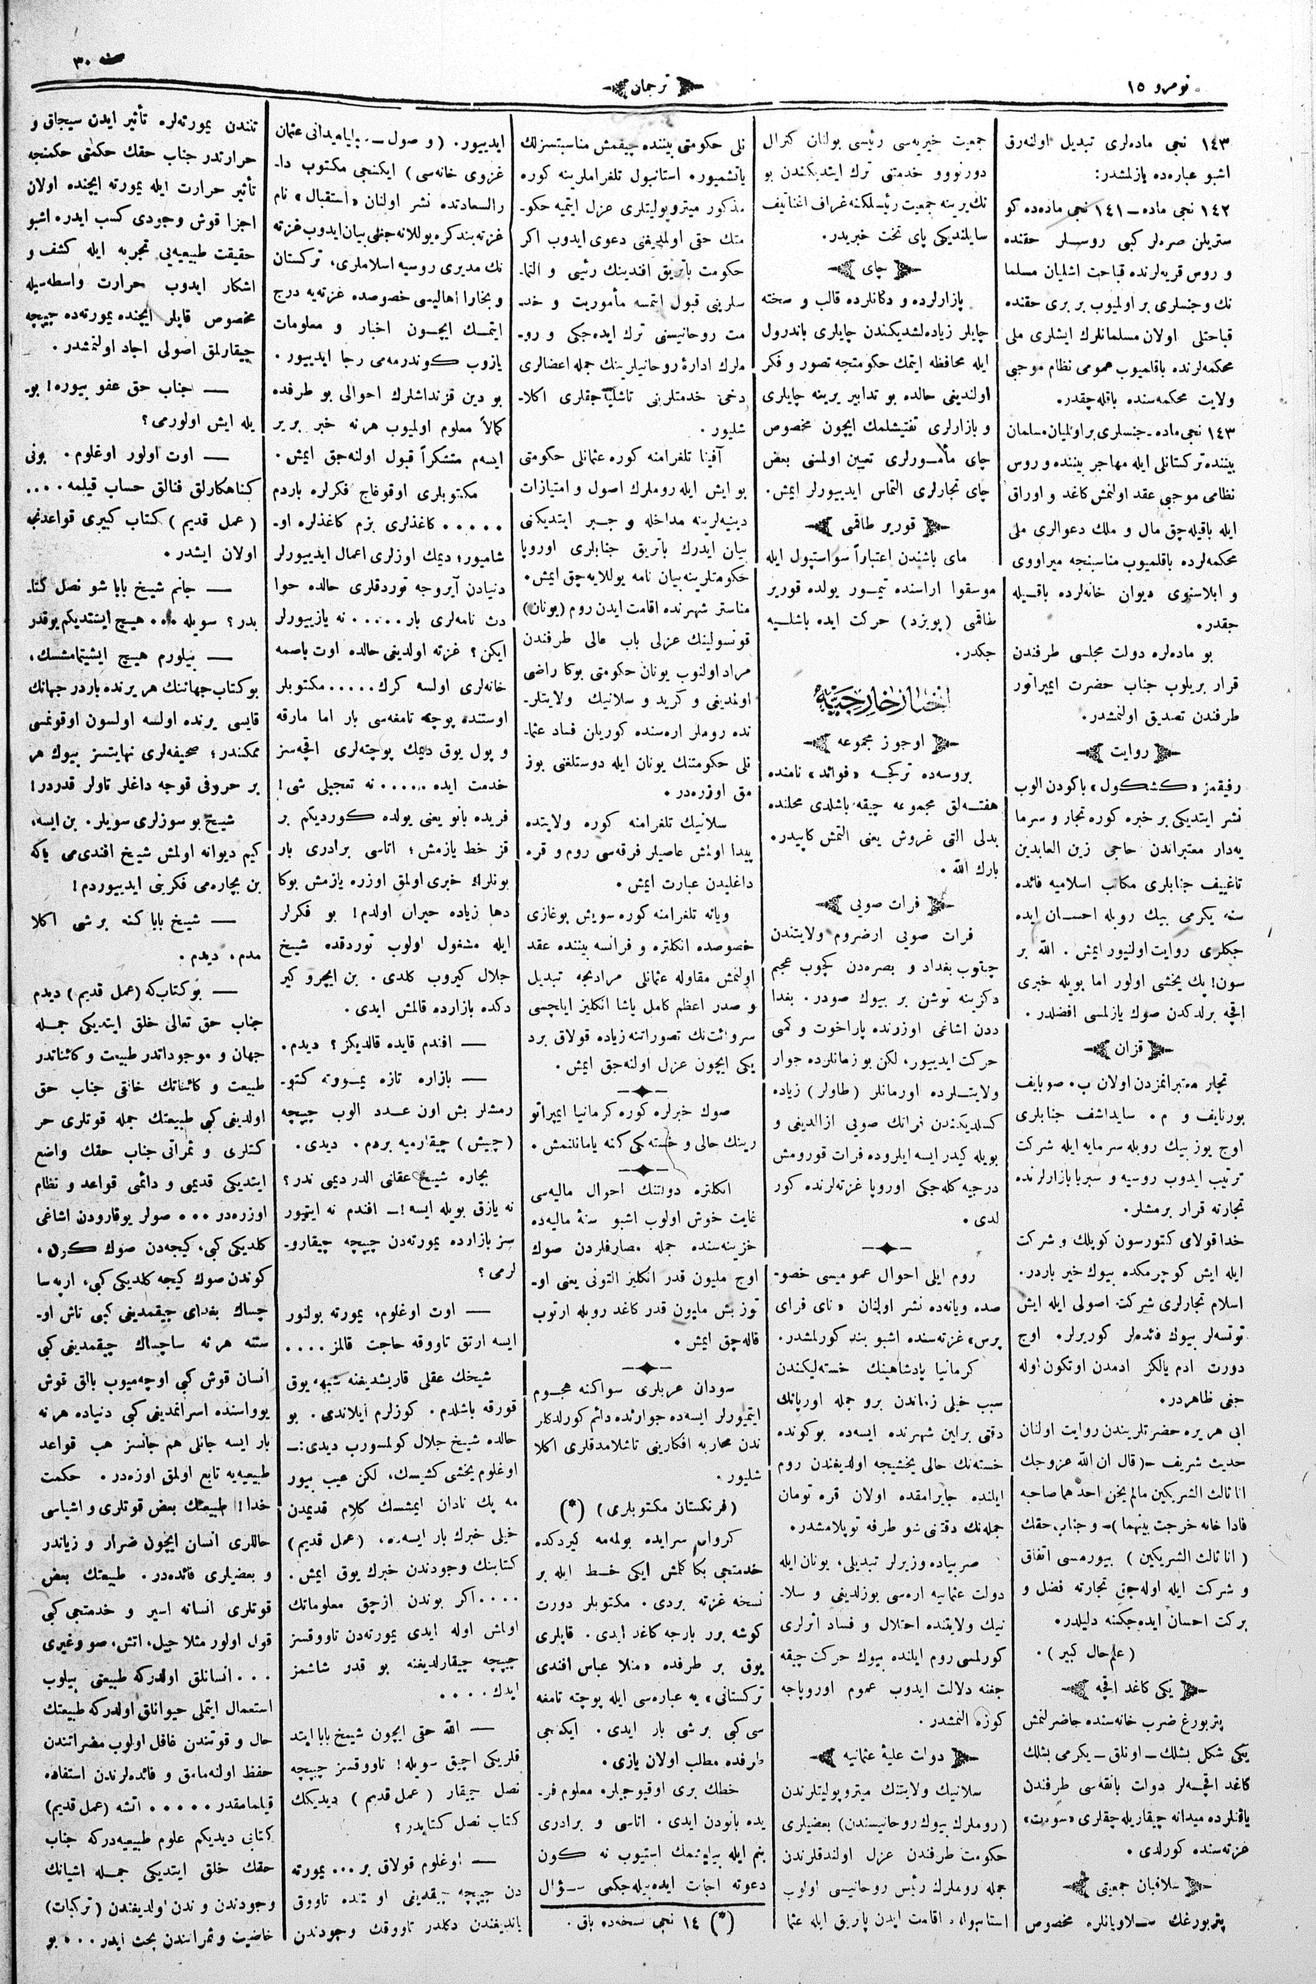 نومرو ١٥
ترجمان
صحيفه ٣٠
١٤٣ نجى ماده‌لرى تبديل اولنه‌رق
اشبو عباره‌ده يازلمشدر:
١٤٢ نجى ماده ــ ١٤١ نجى ماده‌ده كو
ستريلن صره‌لر كبى روســلر حقنده
و روس قريه‌لرنده قباحت اشليان مسلما
نك و جنسلرى بر اولميوب بر برى حقنده
قباحتلى اولان مسلمانلرك ايشلرى ملى
محكمه‌لرنده باقلميوب عمومى نظام موجبى
ولايت محكمه‌سنده باقله‌چقدر.
١٤٣ نجى ماده ــ جنسلرى بر اولميان مسلمان
بيننده تركستانلى ايله مهاجر بيننده و روس
نظامى موجبى عقد اولنمش كاغد و اوراق
ايله باقيله‌چق مال و ملك دعوالرى ملى
محكمه‌لرده باقلميوب مناسبنجه ميراووى
و ابلاسنوى ديوان خانه‌لرده باقــيله
جقدر.
بو ماده‌لره دولت مجلسى طرفندن
قرار بريلوب جناب حضرت ايمپراتور
طرفندن تصديق اولنمشدر.
روايت
رفيقمز «كشكول» باكودن الوب
نشر ايتديكى بر خبره كوره تجار و سرما
يه‌دار معتبراندن حاجى زين العابدين
تاغييف جنابلرى مكاتب اسلاميه فائده
سنه يكرمى بيك روبله احسـان ايده
جكلرى روايت اولنيور ايمش. الله بر
سون! پك يخشى اولور اما بويله خبرى
اقچه برلدكدن صوك يازلمسى افضلدر.
قزان
تجار معتبرانمزدن اولان ب. صوبايف
بورنايف و م. سايداشف جنابلرى
اوچ يوز بيك روبله سرمايه ايله شركت
ترتيب ايدوب روسيه و سبريا بازارلرنده
تجارته قرار برمشلر.
خدا قولاى كتورسون كويلك و شركت
ايله ايش كوجرمكده بيوك خير باردر.
اسلام تجارلرى شركت اصولى ايله ايش
توتسه‌لر بيوك فائده‌لر كوربرلر. اوچ
دورت ادم يالكز ادمدن اوتكون اوله
جغى ظاهردر.
ابى هريره حضرتلريندن روايت اولنان
حديث شريف ـ (قال ان الله عزوجل
انا ثالث الشريكين مالم يخن احدهما صاحبه
فاذا خانه خرجت بينهما) ـ و جناب حقك
(انا ثالث الشريكين) بيورمسى اتفاق
و شركت ايله اوله‌چق تجارته فضل و
بركت احسان ايده‌جكنه دليلدر.
(علم‌حال كبير).
يكى كاغد اقچه
پتربورغ ضرب خانه‌سنده حاضرلنمش
يكى شكل بشلك ــ اونلق ــ يكرمى بشلك
كاغد اقچه‌لر دولت بانقه‌سى طرفندن
ياقنلرده ميدانه چيقاريله‌چقلرى «سودت»
غزته‌سنده كورلدى.
سلافيان جمعيتى
پتربورغك ســلاويانلره مخصوص
جمعيت خيريه‌سى رئيسى بولنان كنرال
دورنووو خدمتى ترك ايتديكندن بو
نك يرينه جمعيت رئيسلكنه غراف اغناتيف
سايلنديكى پاى تخت خبريدر.
چاى
بازارلرده و دكانلرده قالب و سخته
چايلر زياده‌لشديكندن چايلرى باندرول
ايله محافظه ايتمك حكومتجه تصور و فكر
اولنديغى حالده بو تدابير يرينه چايلرى
و بازارلرى تفتيشلمك ايچون مخصوص
چاى مأمـورلرى تعيين اولمسنى بعض
چاى تجارلرى التماس ايدييورلر ايمش.
قورير طاقمى
ماى باشندن اعتباراً سواستپول ايله
موسقوا اراسنده تيمـور يولده قورير
طاقمى (پويزد) حركت ايده باشلــيه
جكدر.
اخبار خارجيّه
اوجوز مجموعه
بروسه‌ده تركجه «فوائد» نامنده
هفته‌لق مجموعه چيقه باشلدى محلنده
بدلى التى غروش يعنى التمش كاپيدر.
بارك الله.
فرات صويى
فرات صويى ارضروم ولايتندن
چيقوب بغداد و بصره‌دن كچوب عجم
دكزينه توشن بر بيوك صودر. بغدا
ددن اشاغى اوزرنده پاراخوت و كمى
حركت ايدييور، لكن بو زمانلرده جوار
ولايتــلرده اورمانلر (طاولر) زياده
كسلديكندن فراتك صويى ازالديغى و
بويله كيدر ايسه ايلروده فرات قورومش
درجه‌يه كله‌جكى اوروپا غزته‌لرنده كور
لدى.
روم ايلى احوال عموميسى خصو-
صده ويانه‌ده نشر اولنان «ناى فراى
پرس» غزته‌سنده اشبو بند كورلمشدر.
كرمانيا پادشاهينك خسته‌ليكندن
سبب خيلى زماندن برو جمله اورپانك
دقتى براين شهرنده ايسه‌ده بوكونده
خسته‌نك حالى يخشيجه اولديغندن روم
ايلنده جايرامقده اولان قره تومان
جمله‌نك دقتنى شو طرفه توپلامشدر.
صربياده وزيرلر تبديلى، يونان ايله
دولت عثمانيه اره‌سى بوزلديغى و سلا-
نيك ولايتنده اختلال و فساد اثرلرى
كورلمسى روم ايلنده بيوك حركت چيقه
جغنه دلالت ايدوب عموم اوروپاجه
كوزه النمشدر.
دولت عليهٔ عثمانيه
سلانيك ولايتنك ميتروپوليتلرندن
(روملرك بيوك روحانيسندن) بعضيلرى
حكومت طرفندن عزل اولندقلرندن
جمله روملرك رئيس روحانيسى اولوب
استانبولده اقامت ايدن پاتريق ايله عثما
نلى حكومتى بيننده چيقمش مناسبتسزلك
ياتشميور. استانبول تلغراملرينه كوره
مذكور ميتروپوليتلرى عزل ايتميه حكو-
متك حقى اولمديغنى دعوى ايدوب اكر
حكومت باتريق افندينك رئيى و التما-
سلرينى قبول ايتمسه مأموريت و خد-
مت روحانيسنى ترك ايده‌جكى و رو-
ملرك ادارهٔ روحانيلرينك جمله اعضالرى
دخى خدمتلرينى تاشليه‌جقلرى اكلا-
شليور.
آفينا تلغرامنه كوره عثمانلى حكومتى
بو ايش ايله روملرك اصول و امتيازات
دينيه‌لرينه مداخله و جــبر ايتديكنى
بيان ايدرك باتريق جنابلرى اوروپا
حكومتلرينه بيان نامه يوللايه‌چق ايمش.
مناستر شهرنده اقامت ايدن روم (يونان)
قونسولينك عزلى باب عالى طرفندن
مراد اولنوب يونان حكومتى بوكا راضى
اولمديغى و كريد و سلانيك ولايتلر-
نده روملر اره‌سنده كوريلان فساد عثما-
نلى حكومتنك يونان ايله دوستلغنى بوز
مق اوزره‌در.
سلانيك تلغرامنه كوره ولايتده
پيدا اولمش عاصيلر فرقه‌سى روم و قره
داغليدن عبارت ايمش.
ويانه تلغرامنه كوره سويش بوغازى
خصوصده انكلتره و فرانسه بيننده عقد
اولنمش مقاوله عثمانلى مرادنجه تبديل
و صدر اعظم كامل پاشا انكليز ايلچسى
سروائت‌نك تصوراتنه زياده قولاق برد
يكى ايچون عزل اولنه‌جق ايمش.
صوك خبرلره كوره كرمانيا ايمپراتو
رينك حالى و خسته لكى كنه يامانلنمش.
انكلتره دولتنك احوال ماليه‌سى
غايت خوش اولوب اشبو سنهٔ ماليه‌ده
خزينه‌سنده جمله مصارفلردن صوك
اوچ مليون قدر انكليز التونى يعنى او-
توز بش مليون قدر كاغد روبله ارتوب
قاله‌چق ايمش.
سودان عربلرى سواكنه هجــوم
ايتميورلر ايسه‌ده جوارنده دائم كورلدكلر
ندن محاربه افكارينى تاشلامدقلرى اكلا
شليور.
(فرنكستان مكتوبلرى) (*)
كروان سرايده بولمه‌مه كيردكده
خدمتجى بكا كلمش ايكى خـط ايله بر
نسخه غزته بردى. مكتوبلر دورت
كوشه برر پارچه كاغد ايدى. قابلرى
يوق بر طرفده «منلا عباس افندى
تركستانى» يه عباره‌سى ايله پوچته تامغه
سى كبى بر شى بار ايدى. ايكنجى
طرفده مطلب اولان يازى.
خطك برى اوقيوجيلره معلوم فر-
يده بانودن ايدى. اتاسى و برادرى
بنم ايله بيليشمك استيوب نه كـون
دعوته اجابت ايده‌بيله‌جكمى ســؤال
(*) ١٤ نجى نسخه‌ده باق.
ايدييور. (و صول ــ بابا ميدانى عثمان
غزوى خانه‌سى) ايكنجى مكتوب دا-
رالسعادتده نشر اولنان «استقبال» نام
غزته بندكره يوللانه‌جغنى بيان ايدوب غزته
نك مديرى روسيه اسلاملرى، تركستان
و بخارا اهاليسى خصوصده غزته‌يه درج
ايتمـك ايچــون اخبار و معلومات
يازوب كـوندرمه‌مى رجا ايدييور.
بو دين قرنداشلرك احوالى بو طرفده
كمالاً معلوم اولميوب هر نه خبر برير
ايسه‌م متشكراً قبول اولنه‌جق ايمش.
مكتوبلرى اوقوغاچ فكرلره باردم
..... كاغذلرى بزم كاغذلره او-
شاميور؛ ديمك اوزلرى اعمال ايدييورلر
دنيادن آيروجه توردقلرى حالده حوا
دث نامه‌لرى بار ..... نه يازييورلر
ايكن؟ غزته اولديغى حالده اوت باصمه
خانه‌لرى اولسه كرك ..... مكتوبلر
اوستنده پوچته تامغه‌سى بار اما مارقه
و پول يوق ديمك پوچته‌لرى اقچه‌سز
خدمت ايده ..... نه تعجيلى شى!
فريده بانو يعنى يولده كورديكم بر
قز خط يازمش؛ اتاسى برادرى بار
بونلرك خبرى اولمق اوزره يازمش بوكا
دها زياده حيران اولدم! بو فكرلر
ايله مشغول اولوب توردقده شيخ
جلال كيروب كلدى. بن ايچرو كير
دكده بازارده قالمش ايدى.
ــ افندم قايده قالديكز؟ ديدم.
ــ بازاره تازه يمــورته كتو-
رمشلر بش اون عــدد الوب چيپچه
(چيش) چيقارميه بردم. ديدى.
بچاره شيـخ عقلنى الدرديمى ندر؟
نه يازق بويله ايسه! ــ افندم نه ايتيور
سز بازارده يمورته‌دن چيپچه چيقارو-
لرمى؟
ــ اوت اوغلوم، يمورته بولنور
ايسه ارتق تاووقه حاجت قالمز ....
شيخك عقلى قاريشديغنه شبهه يوق
قورقه باشلدم. كوزلرم ايلاندى. بو
حالده شيخ جلال كولمسورب ديدى: ــ
اوغلوم يخشى كشيسك، لكن عيب بيور
مه پك نادان ايمشسك كلام قديمدن
خيلى خبرك بار ايسه‌ده، (عمل قديم)
كتابنك وجودندن خبرك يوق ايمش.
.... اكر بوندن ازچق معلوماتك
اولمش اوله ايدى يمورته‌دن تاووقسز
چيپچه چيقارلديغنه بو قدر شاشمز
ايدك ....
ــ الله حقى ايچون شيـخ بابا ايتد
قلريكى اچيق سويله! تاووقسز چيپچه
نصل چيقار (عمل قديم) ديديكك
كتاب نصل كتابدر؟
ــ اوغلوم قولاق بر... يمورته
دن چيپچه چيقديغى اوستنده تاووق
ياتديغندن دكلدر تاووقك وجودندن
تنندن يمورته‌لره تأثير ايدن سيجاق و
حرارتدر جناب حقك حكمتى حكمنجه
تأثير حرارت ايله يمورته ايچنده اولان
اجزا قوش وجودى كسب ايدر. اشبو
حقيقت طبيعيه‌يى تجربه ايله كشف و
اشكار ايدوب حرارت واسطه‌سيله
مخصوص قابلر ايچنده يمورته‌ده چيپچه
چيقارلمق اصولى ايجاد اولنمشدر.
ــ جناب حق عفو بيوره! بو-
يله ايش اولورمى؟
ــ اوت اولور اوغلوم. بونى
كناهكارلق قنالق حساب قيلمه....
(عمل قديم) كتاب كبيرى قواعدنجه
اولان ايشدر.
ــ جانم شيـخ بابا شو نصل كتا-
بدر؟ سويله ... هيچ ايشتديكم يوقدر
ــ بيلورم هيچ ايشيتمامشسك،
بو كتاب جهاننك هر يرنده باردر جهانك
قايسى يرنده اولسه اولسون اوقونمسى
ممكندر؛ صحيفه‌لرى نهايتسز بيوك هر
بر حروفى قوجه داغلر تاولر قدردر!
شيخ بو سوزلرى سويلر. بن ايسه،
كيم ديوانه اولمش شيخ افندى‌مى يا كه
بن بچاره‌مى فكرينى ايدييوردم!
ــ شيـخ بابا كنه بر شى اكلا
مدم. ديدم.
ــ بو كتاب كه (عمل قديم) ديدم
جناب حق تعالى خلق ايتديكى جمــله
جهان و موجوداتدر طبيعت و كائناتدر
طبيعت و كائناتك خالقى جناب حق
اولديغى كبى طبيعتك جمله قوتلرى حر
كتلرى و ثمراتى جناب حقك واضع
ايتديكى قديمى و دائمى قواعد و نظام
اوزره‌در ... صولر يوقارودن اشاغى
كلديكى كبى، كيجه‌دن صوك كون،
كوندن صوك كيجه كلديكى كبى، ارپه سا
چساك بغداى چيقمديغى كبى تاش او-
ستنه هر نه ساچساك چيقمديغى كبى
انسان قوش كبى اوچه‌ميوب بالق قوش
يوواسنده اسرانمديغى كبى دنياده هر نه
بار ايسه جانلى هم جانسز هب قواعد
طبيعيه‌يه تابع اولمق اوزه‌در. حكمت
خدا! طبيعتك بعض قوتلرى و اشياسى
حاللرى انسان ايچون ضرار و زياندر
و بعضيلرى فائده‌در. طبيعتك بعض
قوتلرى انسانه اسير و خدمتجى كبى
قول اولور مثلا جيل، اتش، صو و غيرى
... انسانلق اولدركه طبيعتى بيلوب
استعمال ايتملى حيوانلق اولدركه طبيعتك
حال و قوتندن غافل اولوب مضراتندن
حفظ اولنه‌مامق و فائده‌لرندن استفاده
قيلمامقدر ..... اتشه (عمل قديم)
كتابى ديديكم علوم طبيعيه‌دركه جناب
حقك خلق ايتديكى جمــله اشيانك
وجودندن و ندن اولديغندن (تركبات)
خاضيت و ثمراتندن بحث ايدر ... بو